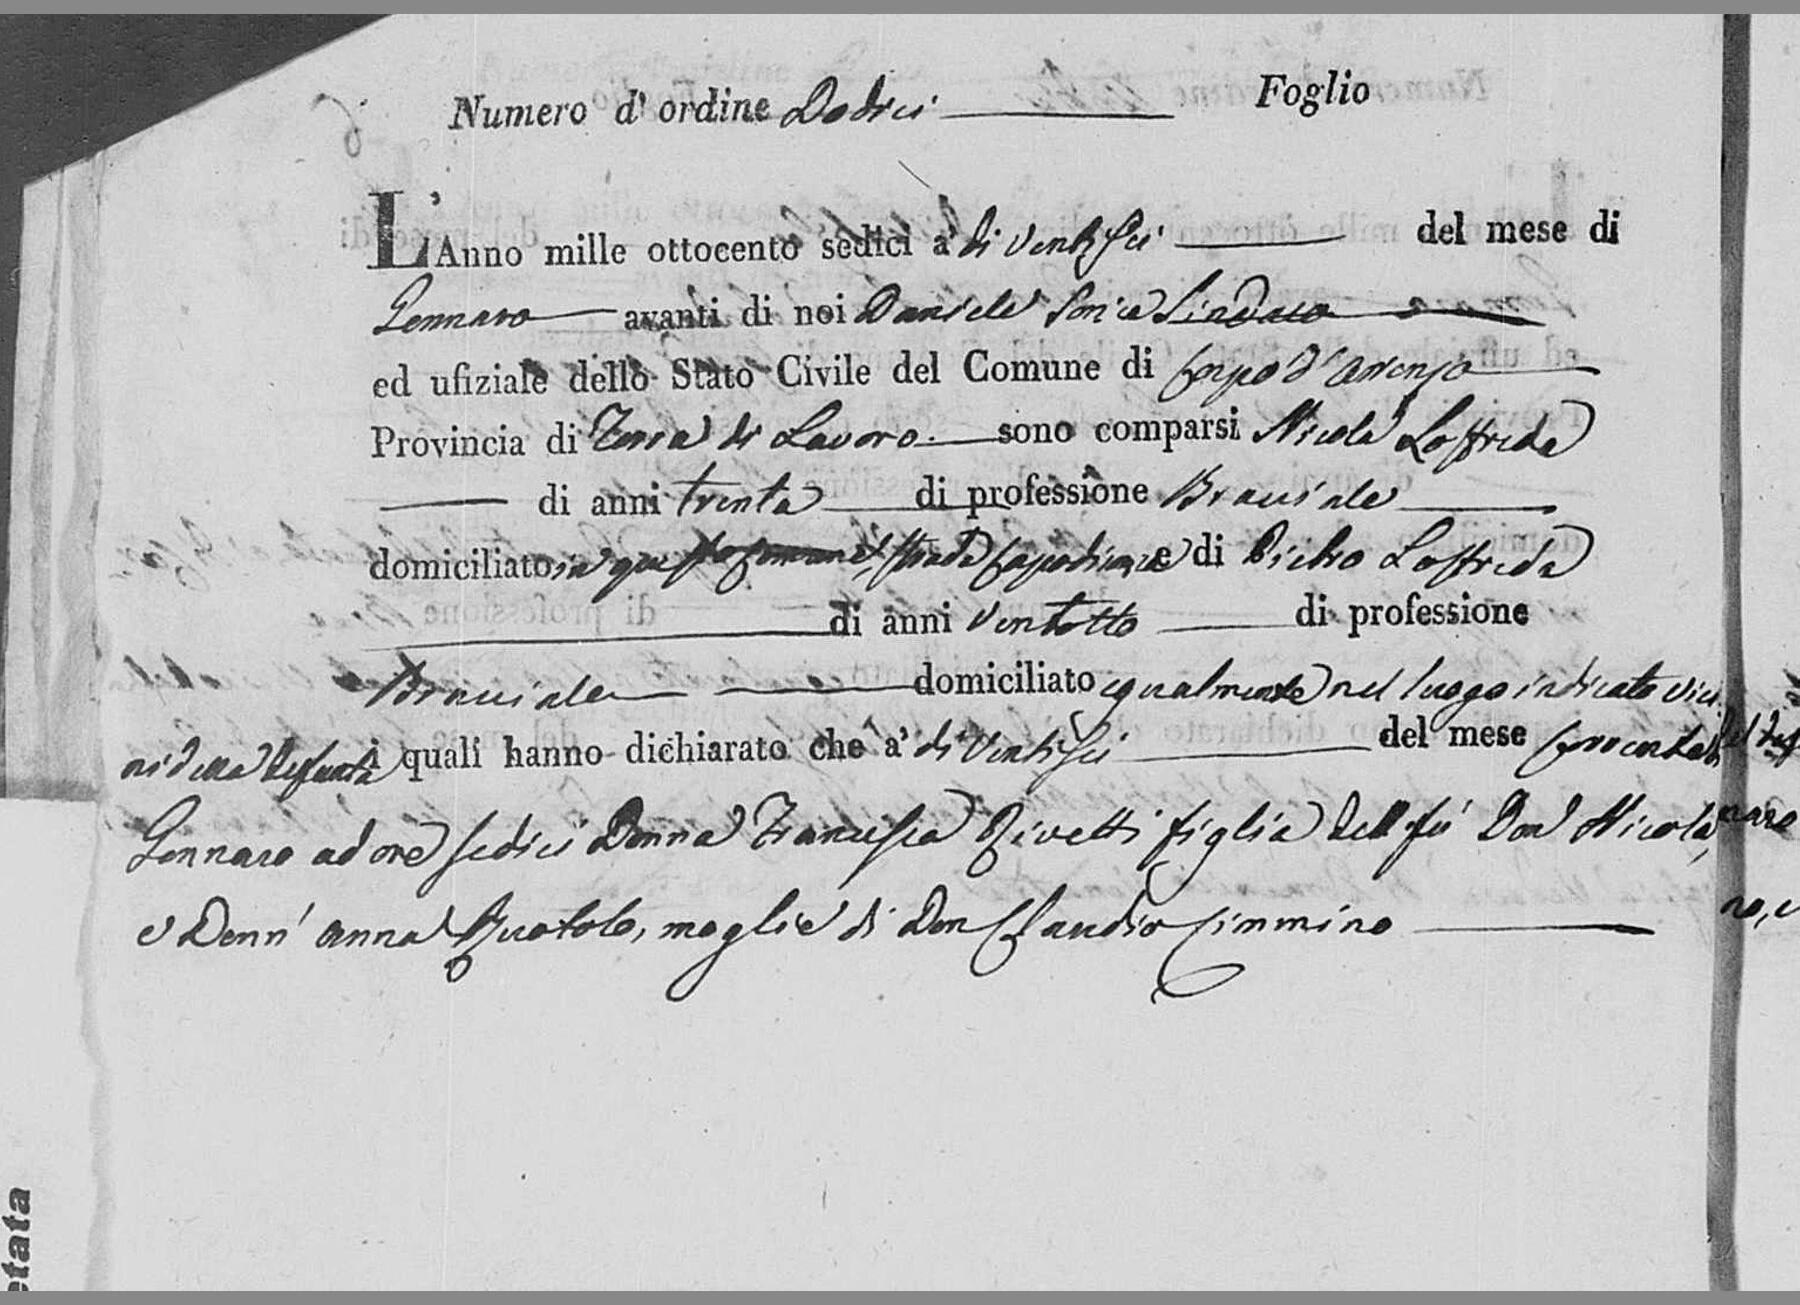 Numero d' ordine Dodici Foglio
L'Anno mille ottocento sedici a' di ventisei del mese di
Gennaro avanti di noi Daniele Sorice Sindaco
ed ufiziale dello Stato Civile del Comune di Corpo d'Arienzo
Provincia di Terra di Lavoro sono comparsi Nicola Loffreda
di anni trenta di professione Bracciale
domiciliato in questo Comune, strada e di Pietro Loffreda
di anni ventotto di professione
Bracciale domiciliato egualmente nel luogo indicato vici
ni della defunta i quali hanno dichiarato che a' di ventisei del mese corrente di
Gennaro ad ore sedici Donna Francesca Rivetti figlia dell fù Don Nicola,
e Donn' Anna moglie di Don Claudio Cimmino
etata